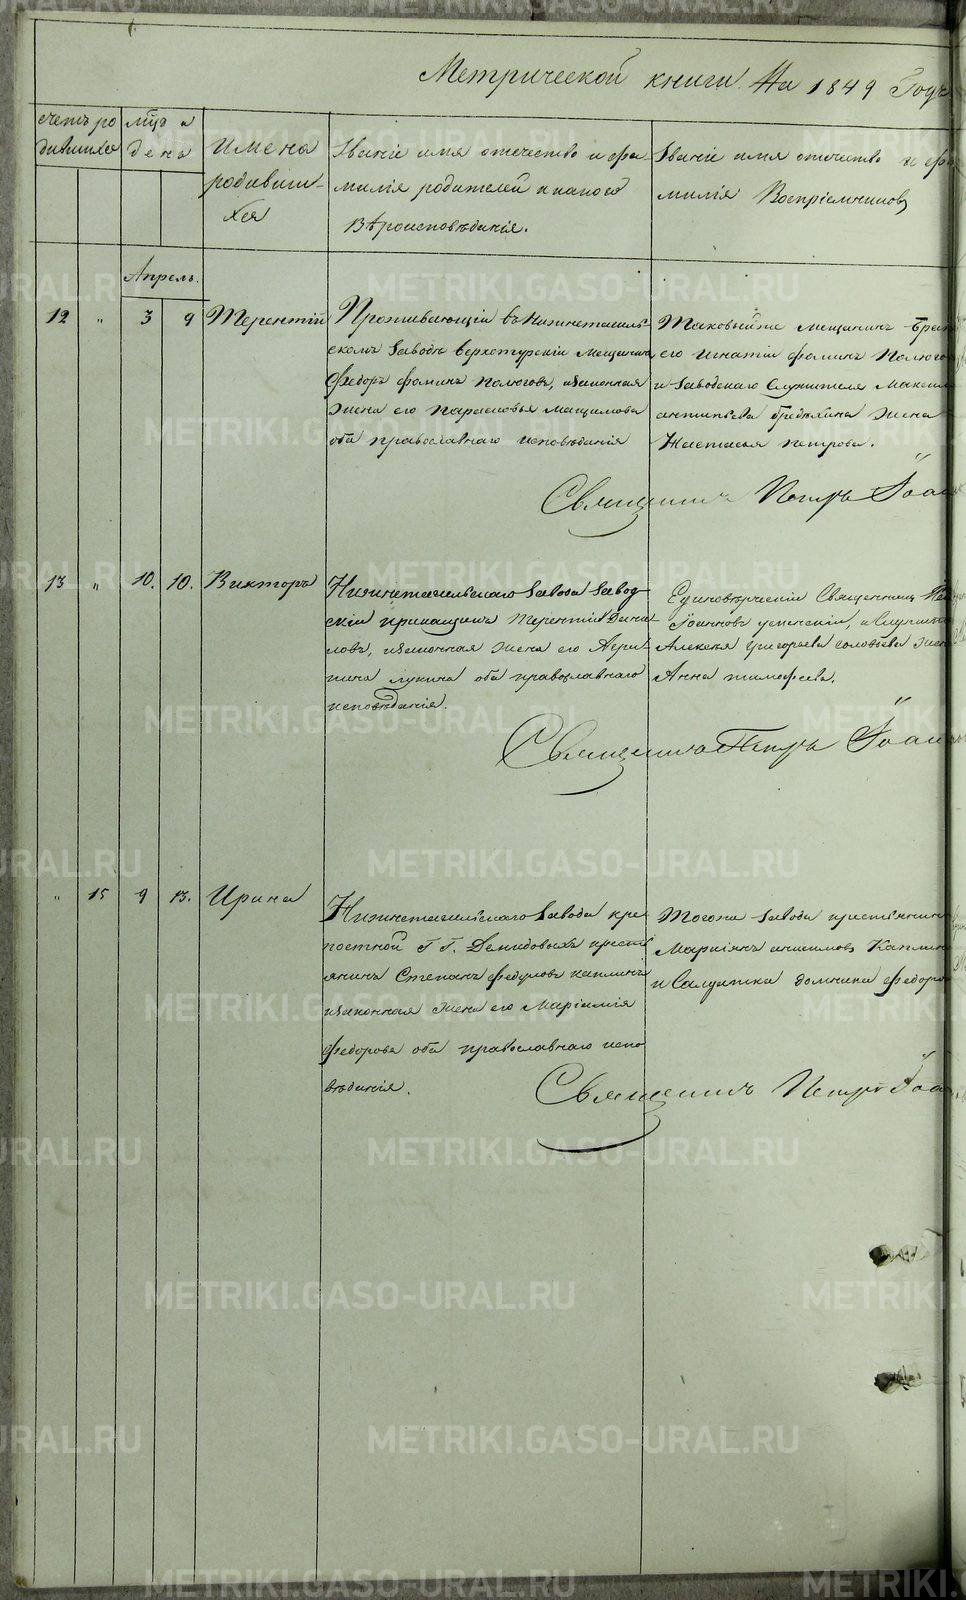 Метрической книги На 1849 Годъ
счетъ ро
дившихся
мѣц. и
день
имена
родивши-
хся
Званіе имя отечество и фа-
милія родителей и какого
Вѣроисповѣданія.
Званіе имя отечество и фа
милія Воспріемниковъ
Апрель.
12 " 3 9 Терентій
Проживающій въ Нижнетагиль-
скомъ Заводѣ верхотурскій мещанинъ
Федоръ фоминъ Полюговъ, изаконная
жена его парасковья Мащимова
оба православнаго исповѣданія
Таковыйже мещанинъ братъ
его игнатій фоминъ Полюгов
и Заводскаго Служителя Максим
антипьева Жена
Настасья петрова.
Священникъ Петръ Іоан
13 " 10. 10. Викторъ
Нижнетагильскаго Завода Завод
скій прикащикъ Терентій Дани-
ловъ, изаконная жена его Агри-
пина лукина оба православнаго
исповѣданія.
Единовѣрческій Священникъ
Іоанновъ успенскій, и
Алексея григорьева соловьева жена
Анна тимофеева.
Священникъ Петръ Іоан
" 15 9 13. Ирина
Нижнетагильскаго Завода кре-
постной Г.Г. Демидовыхъ кресть
янинъ Степанъ федуловъ каплинъ
изаконная жена его Маріамія
федорова оба православнаго испо
вѣданія.
Тогоже Завода крестьянинъ
Маркіянъ анисимовъ Каплин
и Салдатка домника федоро
Священникъ Петръ Іоан
METRIKI.GASO-URAL.RU